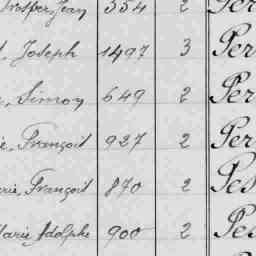 Prosper, Jean 554 2 Per
, Joseph 1497 3 Per
, Simon 649 2 Per
e, François 927 2 Per
arie, François 870 2 Pes
Marie Adolphe 900 2 Pes